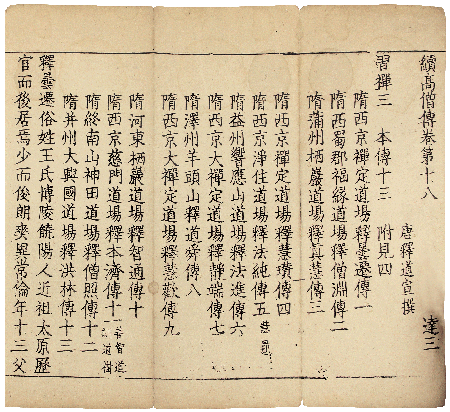 續高僧傳卷第十八
唐釋道宣撰 達三
習禪三 本傳十三 附見四
隋西京禪定道場釋曇遷傳一
隋西蜀郡福緣道場釋僧淵傳二
隋蒲州栖巖道場釋真慧傳三
隋西京禪定道場釋慧瓚傳四
隋西京淨住道場釋法純傳五
隋益州響應山道場釋法進傳六
隋西京大禪定道場釋靜端傳七
隋澤州羊頭山釋道舜傳八
隋西京大禪定道場釋慧歡傳九
隋河東栖巖道場釋智通傳十
隋西京慈門道場釋本濟傳十一 善智道 道樹
隋終南山神田道場釋僧照傳十二
隋并州大興國道場釋洪林傳十三
釋曇遷俗姓王氏博陵饒陽人近祖太原歷
官而後居焉少而俊朗爽異常倫年十三父